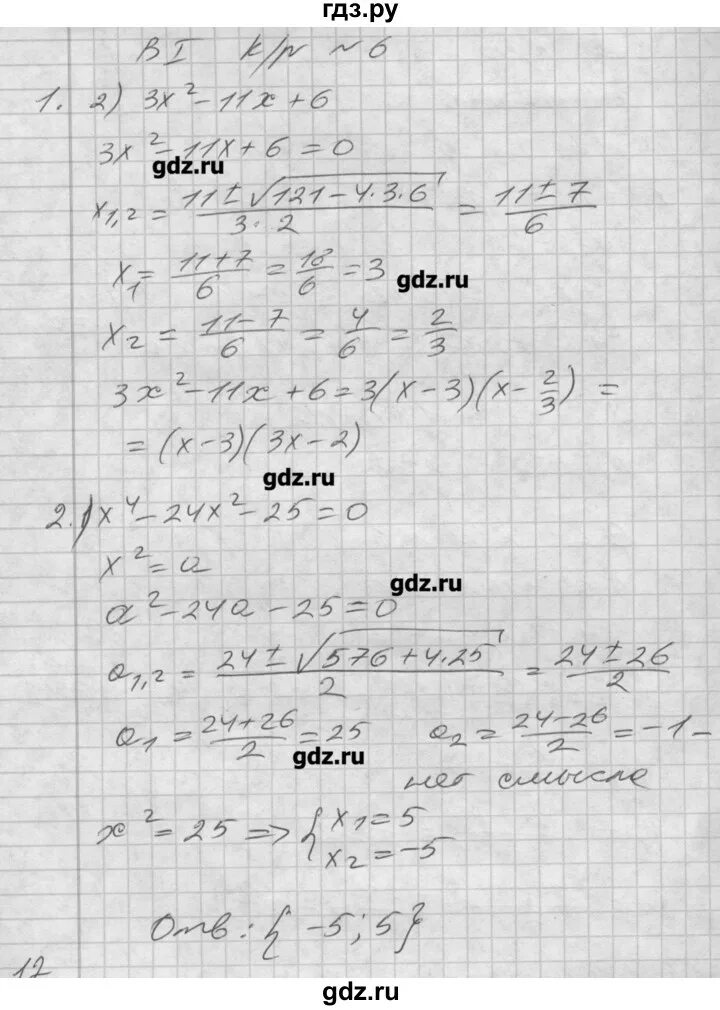 гдз.ру
В I к/р №6
1. 2) 3x² - 11x + 6
3x² - 11x + 6 = 0
gdz.ru
x₁,₂ = (11 ± √(121 - 4·3·6))/(3·2) = (11 ± 7)/6
x₁ = (11 + 7)/6 = 18/6 = 3
gdz.ru
x₂ = (11 - 7)/6 = 4/6 = 2/3
3x² - 11x + 6 = 3(x - 3)(x - 2/3) =
= (x - 3)(3x - 2)
gdz.ru
2. 1) x⁴ - 24x² - 25 = 0
x² = a
gdz.ru
a² - 24a - 25 = 0
a₁,₂ = (24 ± √(576 + 4·25))/2 = (24 ± 26)/2
a₁ = (24 + 26)/2 = 25 a₂ = (24 - 26)/2 = -1 -
gdz.ru
нет смысла
x² = 25 => { x₁ = 5
x₂ = -5
Отв: { -5; 5}
12
gdz.ru